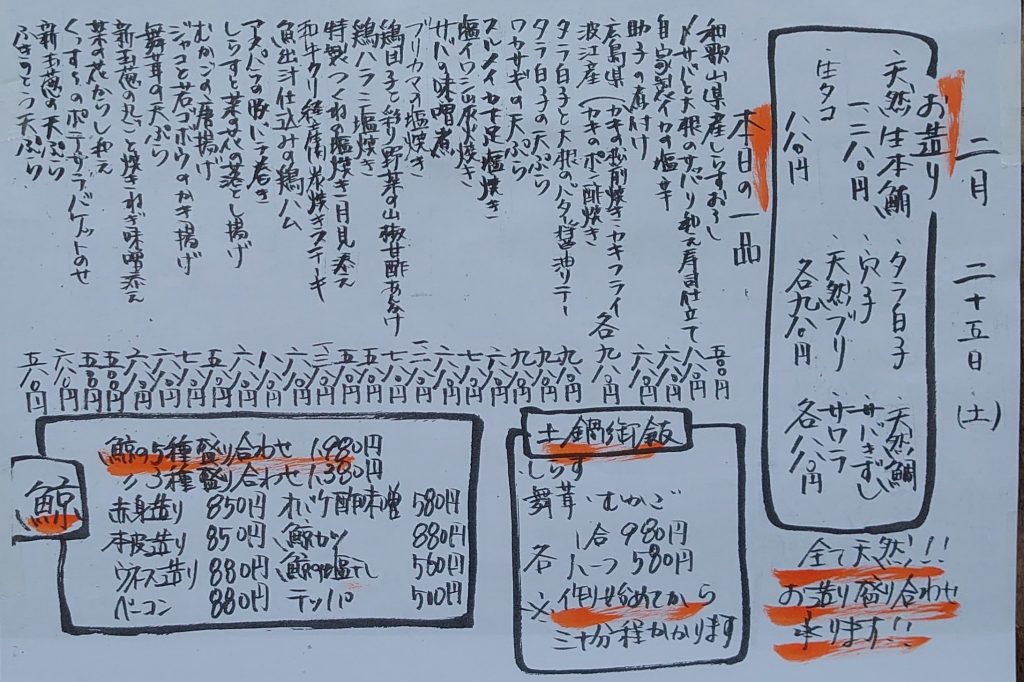 二月 二十五日 (土)
お造り
・天然生本鮪 一二八〇円
・生タコ 八八〇円
・タラ白子
・穴子
・天然ブリ
各九八〇円
・天然鯛
・サバきずし
・サワラ
各八八〇円
全て天然!!
お造り盛り合わせ
承ります!!
本日の一品
和歌山県産しらすおろし 五八〇円
〆サバと大根のサッパリ和え寿司仕立て 八八〇円
自家製イカの塩辛 六八〇円
助子の煮付け 六八〇円
広島県 カキの松前焼き・カキフライ 各九八〇円
波江産 カキのポン酢焼き
タラ白子と大根のバター醤油ソテー 九八〇円
タラ白子の天ぷら 九八〇円
ワカサギの天ぷら 九八〇円
スルメイカ下足塩焼き 六八〇円
塩イワシ山水焼き 六八〇円
サバの味噌煮
ブリカマの塩焼き
鶏団子と彩り野菜の山椒甘酢あんかけ
鶏ハラミ塩焼き
特製つくねの塩焼き 月見添え
和牛クリ 炭焼きステーキ
魚出汁仕込みの鶏ハム
アスパラの豚バラ巻き
しらすと菜の花の落とし揚げ
むかごの唐揚げ
ジャコと若ゴボウのかき揚げ
舞茸の天ぷら
新玉葱の丸ごと焼き ねぎ味噌添え
菜の花からし和え
くんせいのポテサラ バゲットのせ
新玉葱の天ぷら
ふきのとう天ぷら
土鍋御飯
しらす
舞茸 むかご
各 1合 980円
ハーフ 580円
※作り始めてから
三十分程かかります
鯨
鯨の5種盛り合わせ 1,980円
〃 3種盛り合わせ 1,380円
赤身造り 850円
本皮造り 850円
ウネス造り 880円
ベーコン 880円
オバケ酢味噌 580円
鯨カツ 880円
鯨の塩干し 560円
テッパ 500円